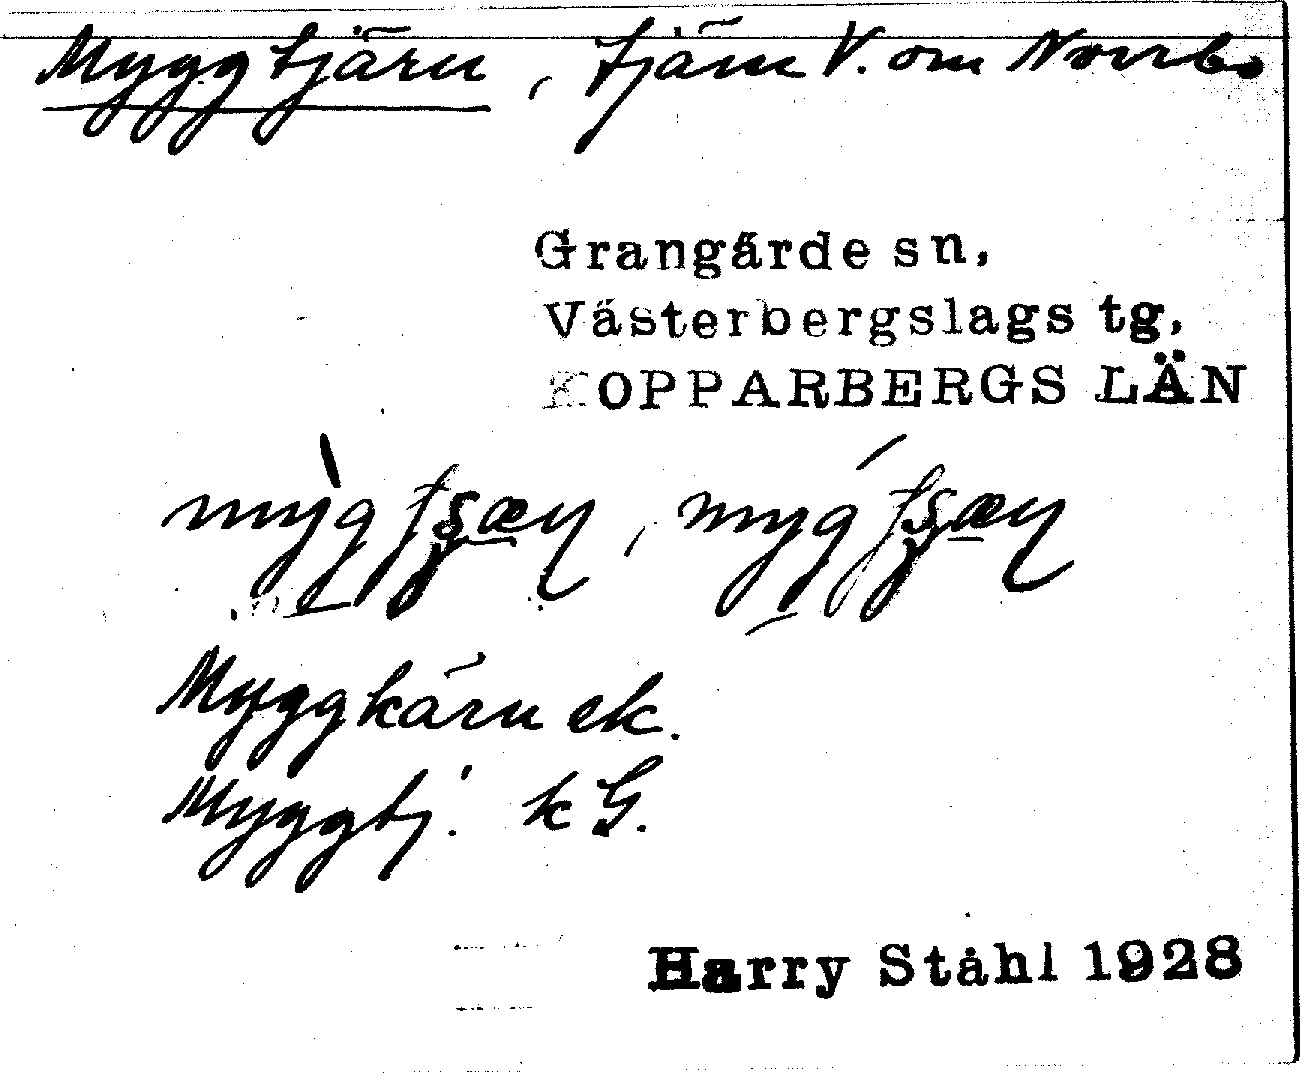 Myggtjärn, tjärn V. om Norrbo
Grangärde sn,
Västerbergslags tg,
KOPPARBERGS LÄN
Myggkärn ek.
Myggtj. k G.
Harry Ståhl 1928